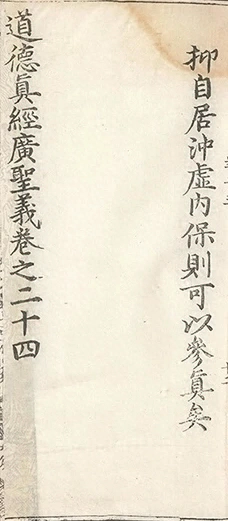 抑自居沖虛内保則可以參真矣
道德真經廣聖義卷之二十四